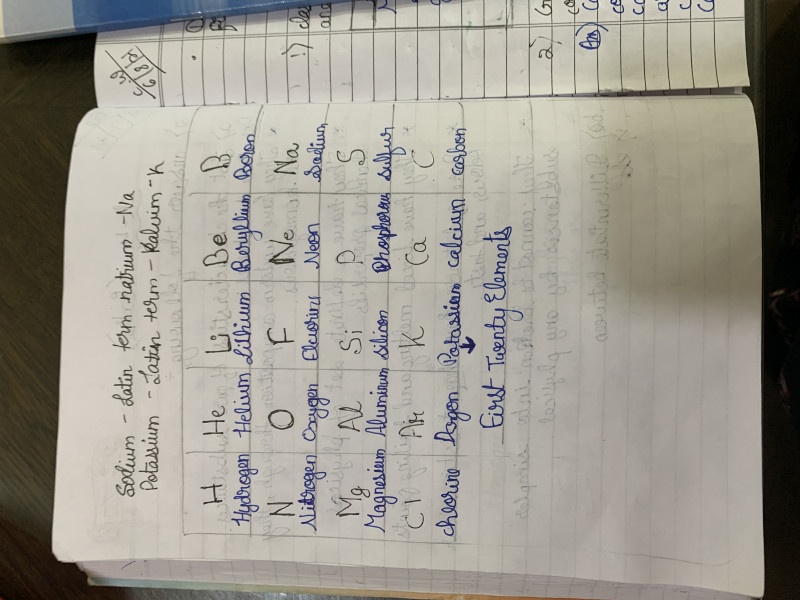 Sodium - Latin term natrium - Na
Potassium - Latin term - Kaluim - K
H He Li Be B
Hydrogen Helium Lithium Beryllium Boron
N O F Ne Na
Nitrogen Oxygen Neon Sodium
Mg Al Si P S
Magnesium Aluminium Silicon Phosphorous Sulfur
Cl Ar K Ca C
chlorine Argon Potassium calcium carbon
First Twenty Elements
1)
2)